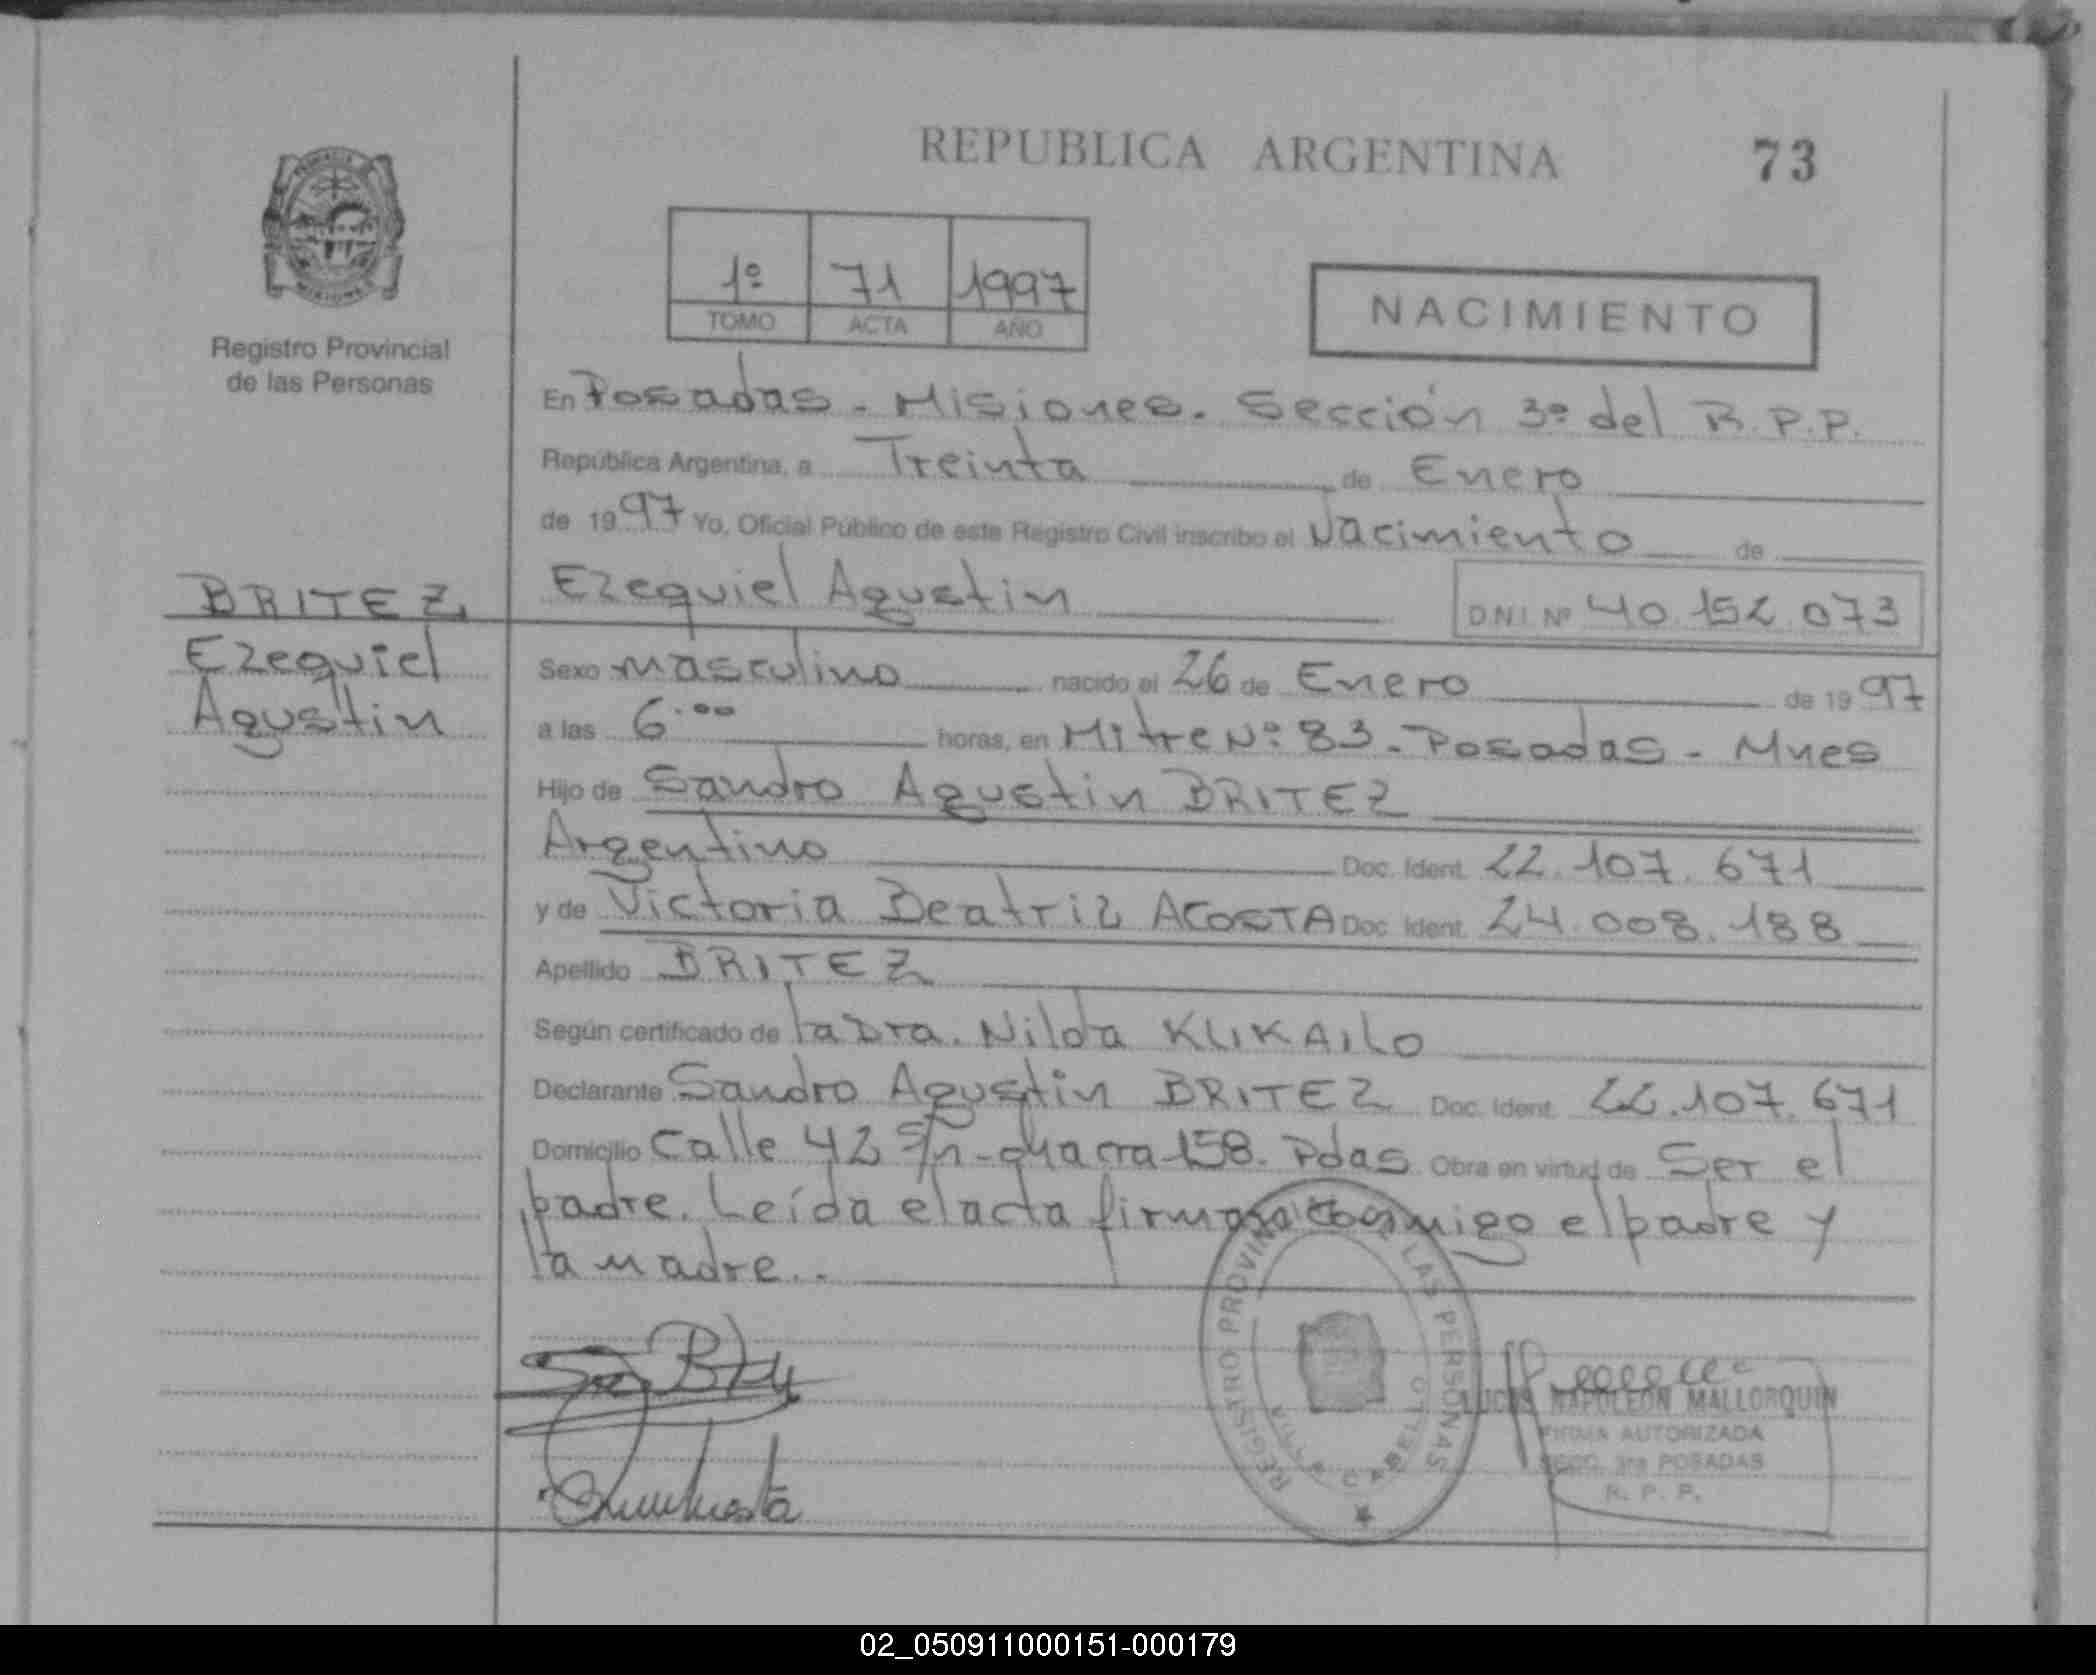 REPUBLICA ARGENTINA 73
1º 71 1997
TOMO ACTA AÑO
NACIMIENTO
Registro Provincial
de las Personas
En Posadas - Misiones. Sección 3º del R.P.P.
República Argentina, a Treinta de Enero
de 1997 Yo, Oficial Público de este Registro Civil inscribo el Nacimiento de
BRITEZ
Ezequiel
Agustin
Ezequiel Agustin D.N.I. Nº 40.152.073
Sexo masculino nacido el 26 de Enero de 1997
a las 6.00 horas, en Mitre Nº 83 - Posadas - Mnes
Hijo de Sandro Agustin BRITEZ
Argentino Doc. Ident. 22.107.671
y de Victoria Beatriz ACOSTA Doc. Ident. 24.008.188
Apellido BRITEZ
Según certificado de la Dra. Nilda KLIKAILO
Declarante Sandro Agustin BRITEZ Doc. Ident. 22.107.671
Domicilio Calle 42 s/n - chacra 158. Pdas Obra en virtud de Ser el
padre. Leída el acta firman conmigo el padre y
la madre..
REGISTRO PROVINCIAL DE LAS PERSONAS
VILLA CABELLO
LUCAS NAPOLEON MALLORQUIN
FIRMA AUTORIZADA
SECC. 3ra POSADAS
R. P. P.
02_050911000151-000179